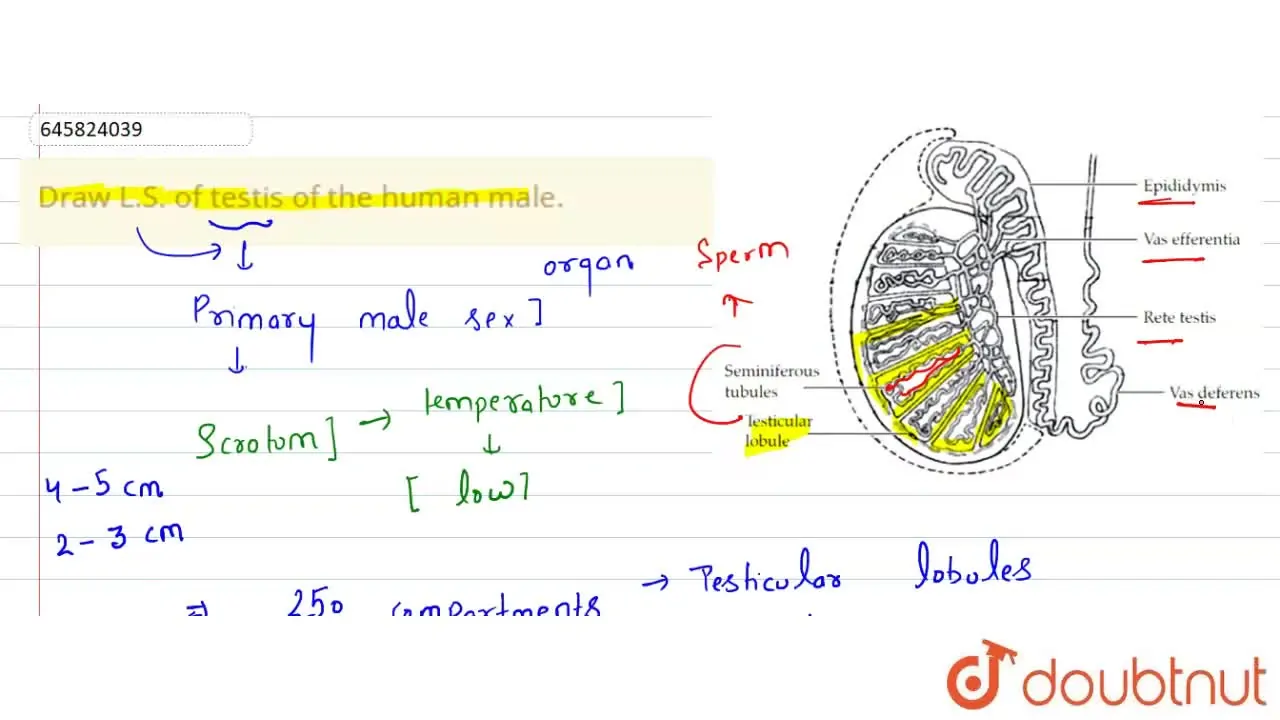 645824039
Draw L.S. of testis of the human male.
organ
Primary male sex]
Scrotum] → temperature]
[ low]
4-5 cm
2-3 cm
⇒ 250 compartments → Testicular lobules
Sperm
Epididymis
Vas efferentia
Rete testis
Seminiferous
tubules
Vas deferens
Testicular
lobule
doubtnut